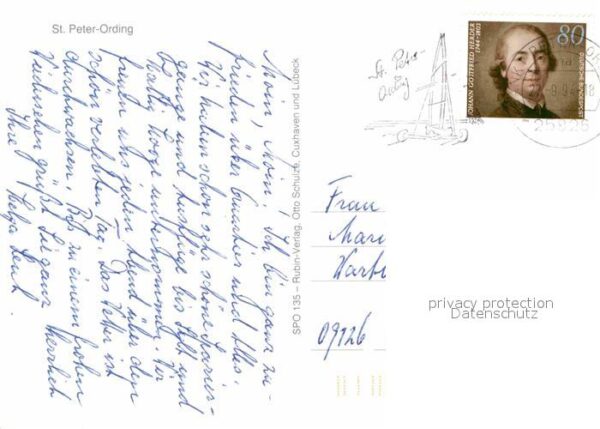 St. Peter-Ording
Moin, Moin! Ich bin ganz zu-
frieden über Quartier und Alles.
Wir haben schon sehr schöne Spazier-
gänge und Ausflüge bis
Hallig Hooge unternommen. Wir
freuen uns jeden Abend über den
schön verlebten Tag. Das Wetter ist
durchwachsen. Bis zu einem frohen
Wiedersehen grüßt Sie ganz herzlich
Ihre Helga
SPO 135 – Rubin-Verlag, Otto Schulze, Cuxhaven und Lübeck
St. Peter-
Ording
JOHANN GOTTFRIED HERDER
1744-1803
80
DEUTSCHE BUNDESPOST
25826
Frau
Mari
09126
privacy protection
Datenschutz